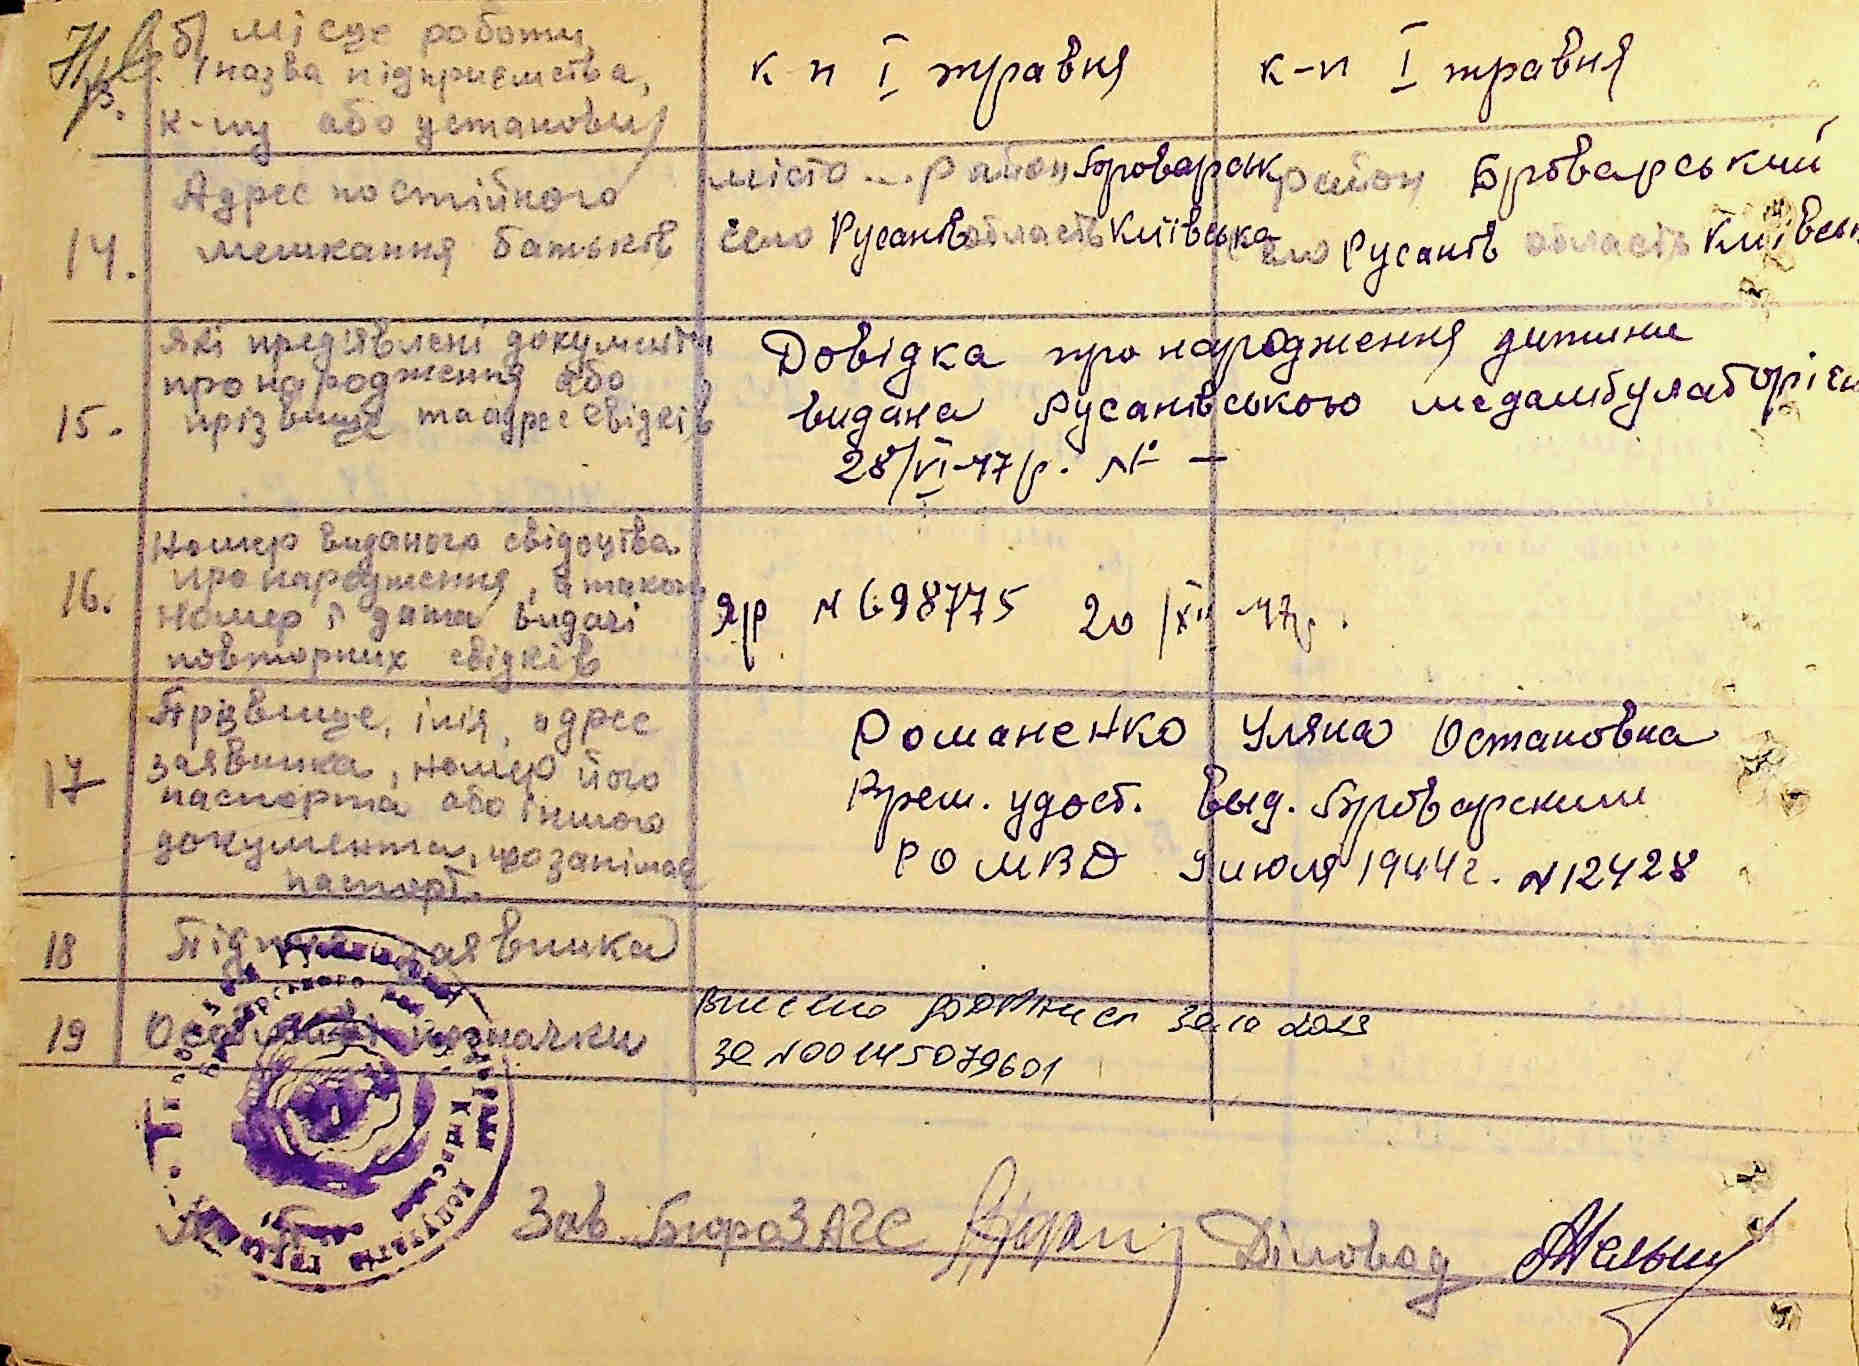 б) місце роботи
(назва підприємства,
к-пу або установи)
к-п І травня
к-п І травня
14.
Адрес постійного
мешкання батьків
місто ... район Броварськ
село Русанів область Київська
район Броварський
село Русанів область Київськ
15.
Які предявлені документи
про народження або
прізвище та адрес свідків
Довідка про народження дитини
видана Русанівською медамбулаторієн
28/VI-47р. № —
16.
Номер виданого свідоцтва
про народження, а також
номер і дата видачі
повторних свідків
ЯР № 698775 20/XII 47р.
17
Прізвище, імя, адрес
заявника, номер його
паспорта або іншого
документа, що заніма
паспорт.
Романенко Уляна Остаповна
Врем. удост. выд. Броварским
РОМВД 9 июля 1944г. №12428
18
Підпис заявника
19
Особливі позначки
Внесено до ДРАЦС
за №00145079601
Зав. БюроЗАГС
Діловод